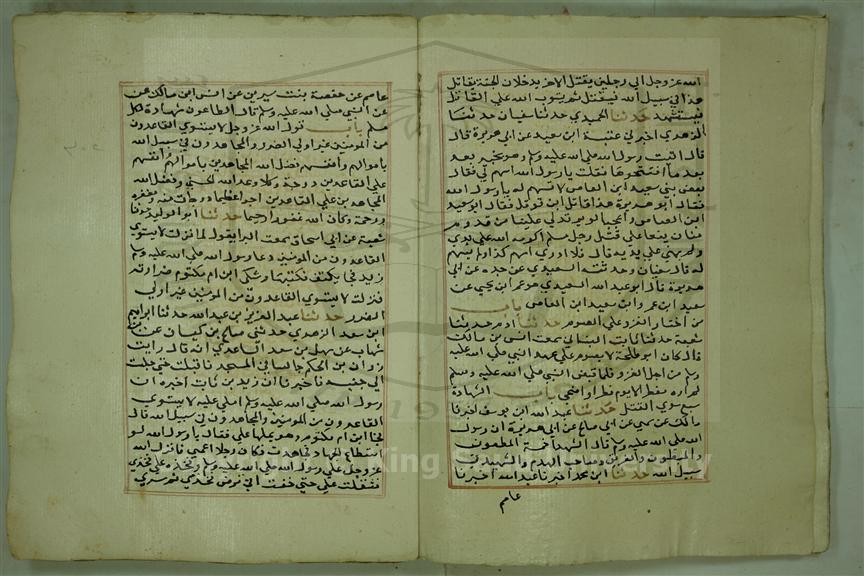 الله عز وجل الي رجلين يقتل الاخر يدخلان الجنة يقاتل
هذا في سبيل الله فيقتل ثم يتوب الله علي القاتل
فيستشهد حدثنا الحميدي حدثنا سفيان حدثنا
الزهدي اخبرني عنبة ابن سعيد عن ابي هريرة قال
قال اتيت رسول الله صلى الله عليه وسلم وهو بخيبر بعد
بعد ما افتتحوها فقلت يا رسول الله اسهم لي فقال
بعض بني سعيد ابن العاص لا تسهم له يا رسول الله
فقال ابو هريرة هذا قاتل ابن قوقل فقال ابو سعيد
ابن العاص واعجبا لوبر تدلي علينا من قدوم
ضان ينعا علي قتل رجل مسلم اكرمه الله علي يدي
ولم يهني علي يديه قال فلا ادري اسهم له ام لم يسهم
له قال سفيان وحدثنيه السعيدي عن جده عن ابي
هريرة قال ابو عبد الله السعيدي هو عمر ابن يحي عن
سعيد ابن عمر وابن سعيد ابن العاص باب
من اختار الغزو علي الصوم حدثنا ادم حدثنا
شعبة حدثنا ثابت البناني سمعت انس بن مالك
قال كان ابو طلحة لا يصوم علي عهد النبي صلي الله عليه
وسلم من اجل الغزو فلما قبض النبي صلي الله عليه وسلم
لم اره مفطرا الا يوم فطر او اضحي باب الشهادة
سبع سوي القتل حدثنا عبد الله ابن يوسف اخبرنا
مالك عن سمي عن ابي صالح عن ابي هريرة ان رسول
الله صلي الله عليه وسلم قال الشهدآ خمسة المطعون
والمبطون والغرق وصاحب الهدم والشهيد في
سبيل الله حدثنا ابن محمد اخبرنا عبد الله اخبرنا
عاصم
عاصم عن حفصة بنت سيرين عن انس ابن مالك عن
عن النبي صلي الله عليه وسلم قال الطاعون شهادة لكل
مسلم باب قول الله عز وجل لا يستوي القاعدون
من المومنين غير اولي الضرر والمجاهدون في سبيل الله
باموالهم وانفسهم فضل الله المجاهدين باموالهم وانفسهم
علي القاعدين درجة وكلا وعد الله الحسني وفضل الله
المجاهدين علي القاعدين اجرا عظيما درجات منه ومغفرة
ورحمة وكان الله غفورا رحيما حدثنا ابو الوليد حدثنا
شعبة عن ابي اسحاق سمعت البرا يقول لما نزلت لا يستوي
القاعدون من المومنين دعا رسول الله صلي الله عليه وسلم
زيد فجا بكتف فكتبها وشكي ابن ام مكتوم ضرارته
فنزلت لا يستوي القاعدون من المومنين غير اولي
الضرر حدثنا عبد العزيز بن عبد الله حدثنا ابراهيم
ابن سعد الزهدي حدثني صالح بن كيسان عن ابن
شهاب عن سهل بن سعد الساعدي انه قال رايت
مروان بن الحكم جالسا في المسجد فاقبلت حتي جلست
الي جنبه فاخبرنا ان زيد بن ثابت اخبره ان
رسول الله صلي الله عليه وسلم املي عليه لا يستوي
القاعدون من المومنين والمجاهدون في سبيل الله قال
فجا ابن ام مكتوم وهو يملها علي فقال يا رسول الله لو
استطاع الجهاد لجاهدت وكان رجلا اعمي فانزل الله
عز وجل علي رسول الله صلي الله عليه وسلم وفخذه علي فخذي
فثقلت علي حتي خفت ان ترض فخذي ثم سري